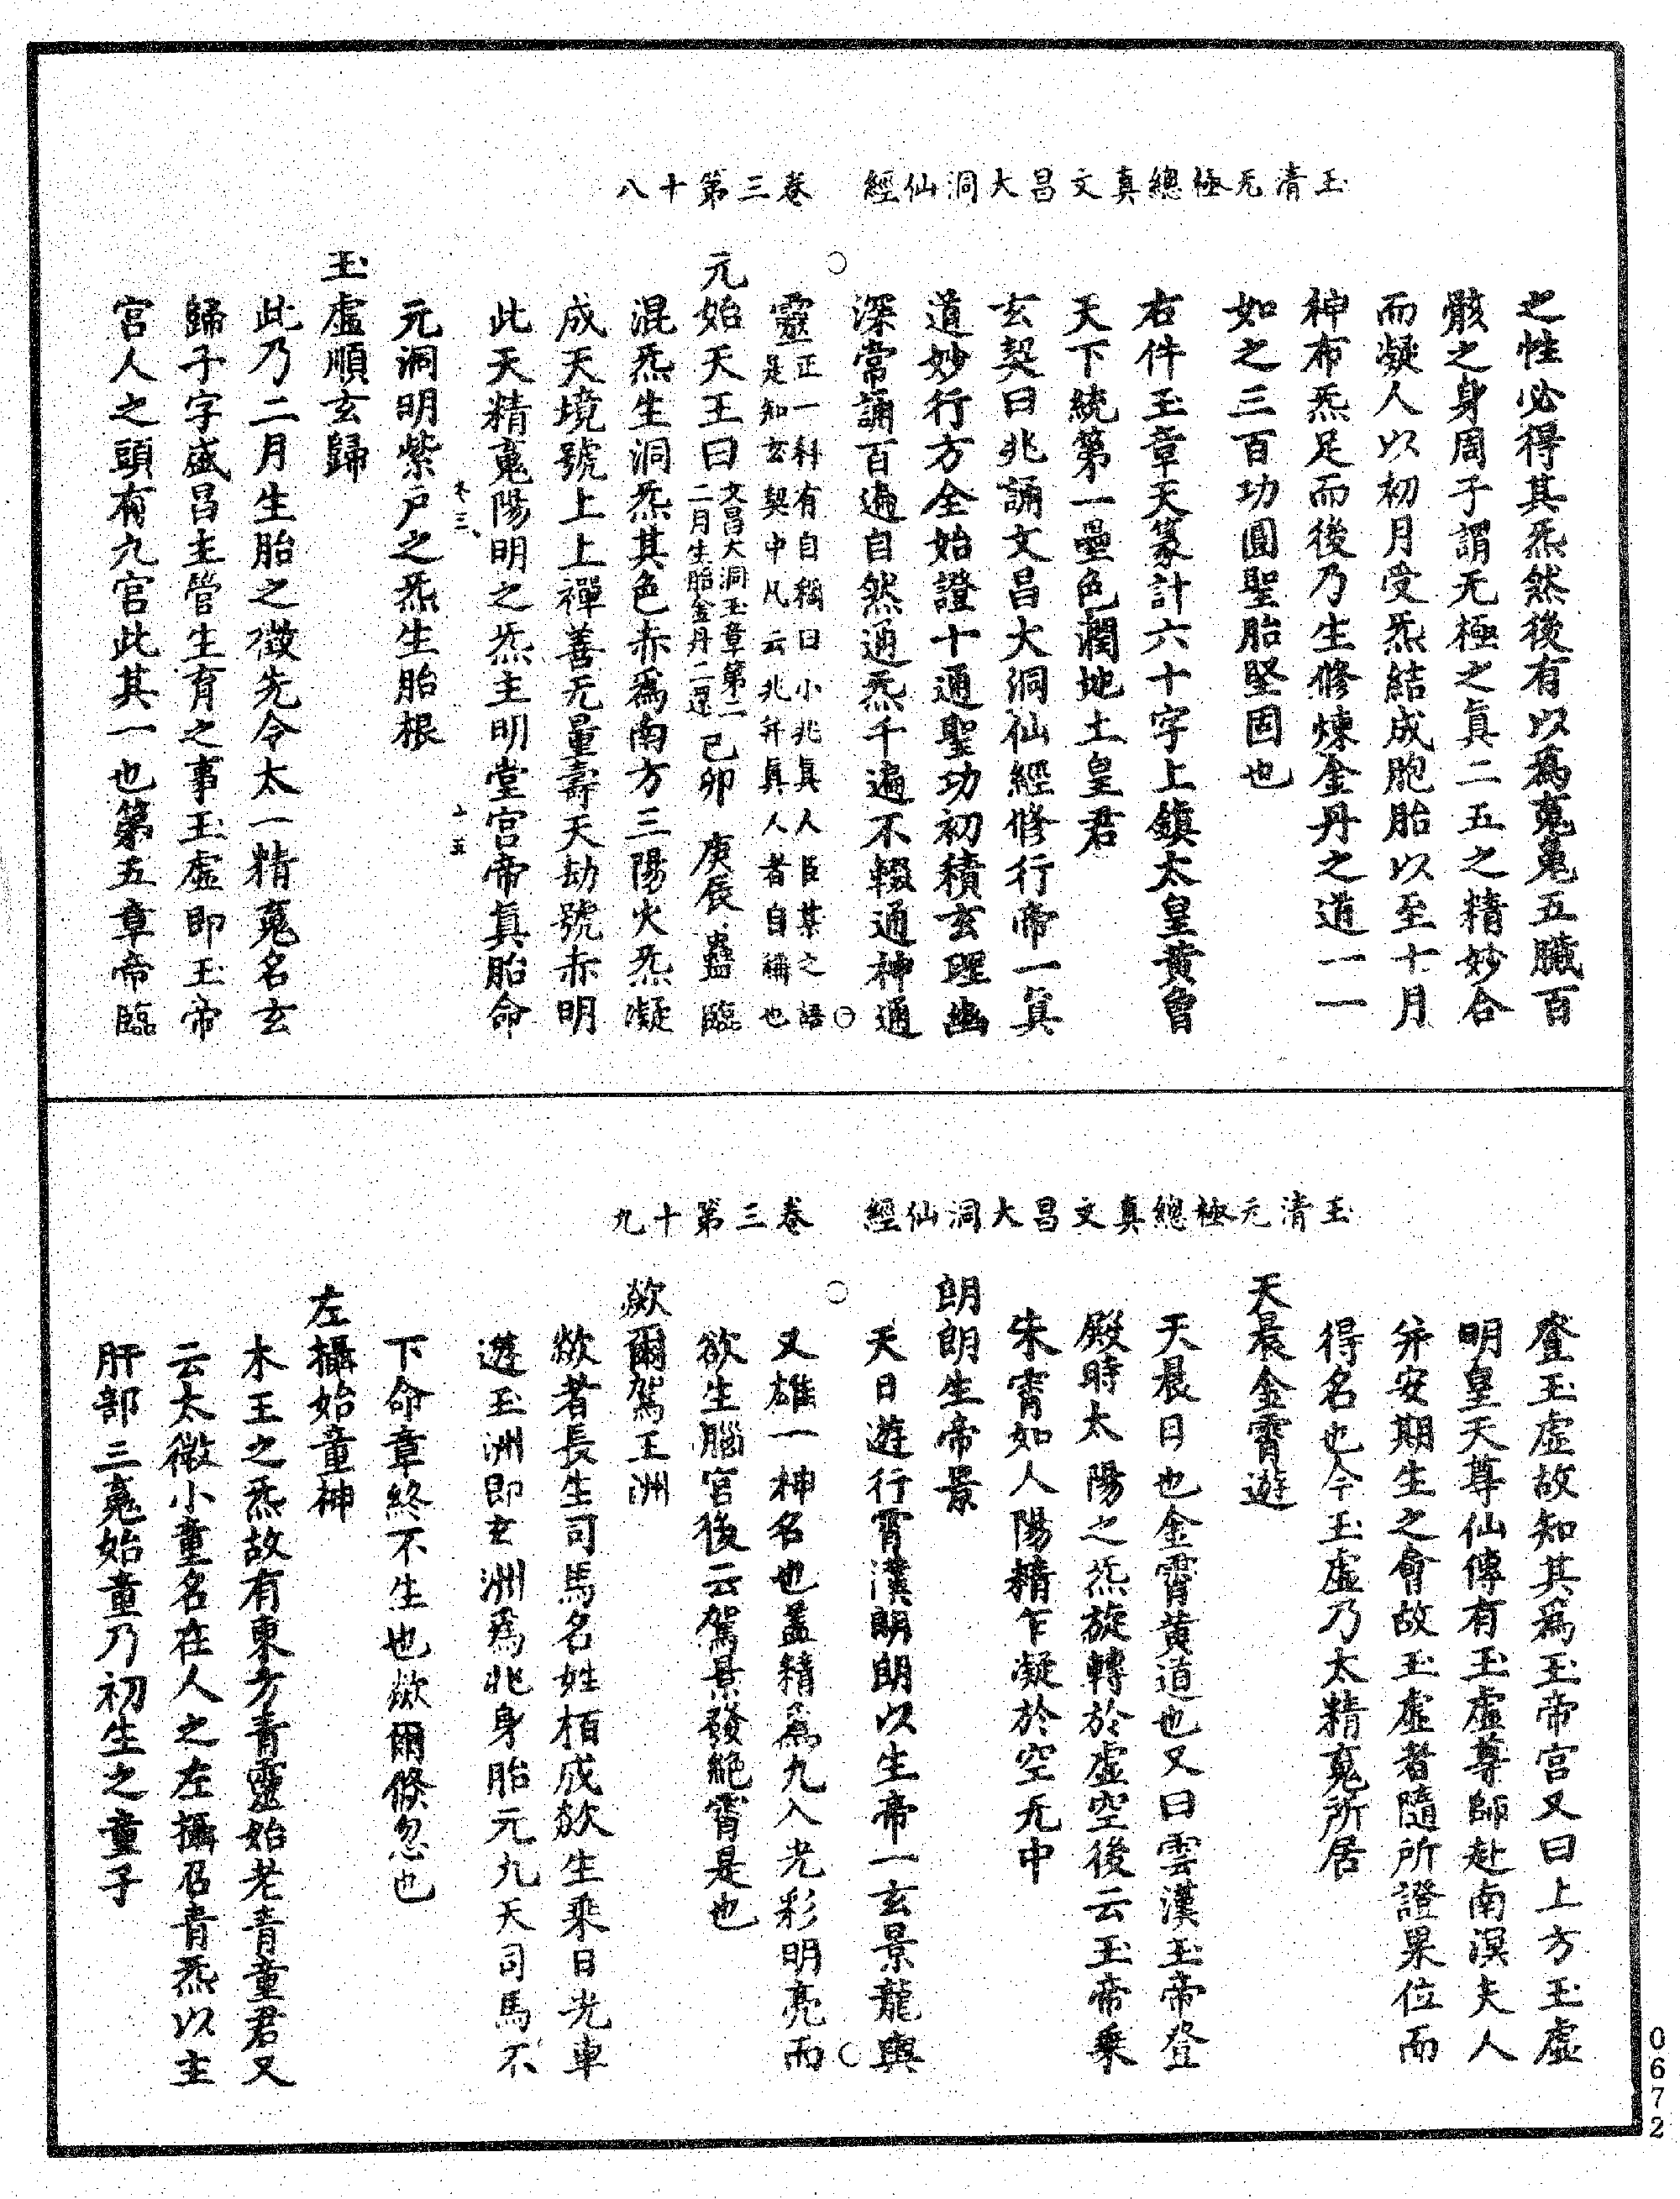 玉清无極總真文昌大洞仙經　卷三第十八
之性必得其炁然後有以爲䰟䰟五臟百
骸之身周子謂无極之眞二五之精妙合
而凝人以初月受炁結成胞胎以至十月
神布炁足而後乃生修煉金丹之道一一
如之三百功圓聖胎堅固也
右件玉章天篆計六十字上鎮太皇黃曾
天下統第一壘色潤地土皇君
玄契曰兆誦文昌大洞仙經修行帝一眞
道妙行方全始證十通聖功初積玄理幽
深常誦百遍自然通炁千遍不輟通神通
靈正一科有自稱曰小兆眞人臣某之語
是知玄契中凡云兆并眞人者自稱也
元始天王曰文昌大洞玉章第二
二月生胎金丹二還己卯　庚辰　蠱　臨
混炁生洞炁其色赤爲南方三陽火炁凝
成天境號上上禪善无量壽天劫號赤明
此天精䰟陽明之炁主明堂宮帝眞胎命
冬三　十五
元洞明紫戶之炁生胎根
玉虛順玄歸
此乃二月生胎之徵先令太一精䰟名玄
歸子字盛昌主管生育之事玉虛即玉帝
宮人之頭有九宮此其一也第五章帝臨
玉清元極總真文昌大洞仙經　卷三第十九
登玉虛故知其爲玉帝宮又曰上方玉虛
明皇天尊仙傳有玉虛尊師赴南溟夫人
并安期生之會故玉虛者隨所證果位而
得名也今玉虛乃太精䰟所居
天晨金霄遊
天晨日也金霄黃道也又曰雲漢玉帝登
殿時太陽之炁旋轉於虛空後云玉帝乘
朱霄如人陽精乍凝於空无中
朗朗生帝景
天日遊行霄漢朗朗以生帝一玄景龍輿
又雄一神名也蓋精爲九入光彩明亮而
欲生腦宮後云駕景發絕霄是也
歘爾駕玉洲
歘者長生司馬名姓栢成歘生乘日光車
遊玉洲即玄洲爲兆身胎元九天司馬不
下命章終不生也歘爾倏忽也
左攝始童神
木王之炁故有東方青靈始老青童君又
云太微小童名在人之左攝召青炁以主
肝部三䰟始童乃初生之童子
0672